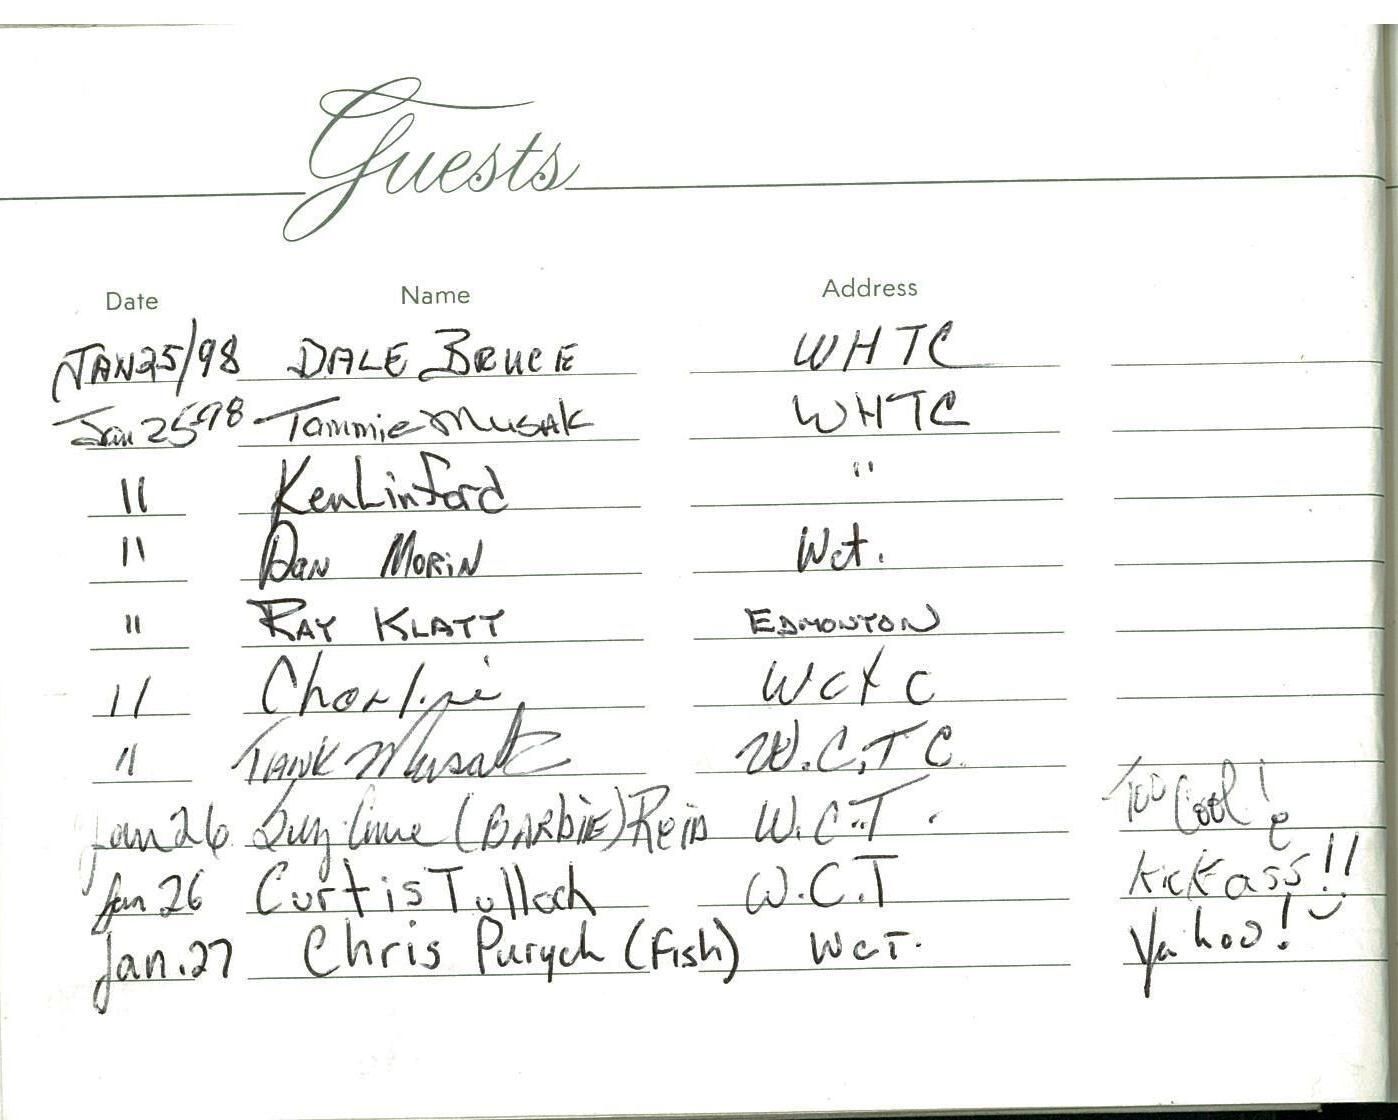 Guests
Date Name Address
JAN25/98 DALE BRUCE WHTC
Jan 25-98 Tammie Musak WHTC
" Ken Linford "
" Dan MORIN Wct.
" RAY KLATT EDMONTON
" Charline WCTC
" TANK Musak W.C,TC.
Jan 26 (BARBIE) Reid W.C.T. Too Cool!
Jan 26 Curtis Tulloch W.C.T kick ass!!
Jan.27 Chris Purych (Fish) WCT. Yahoo!